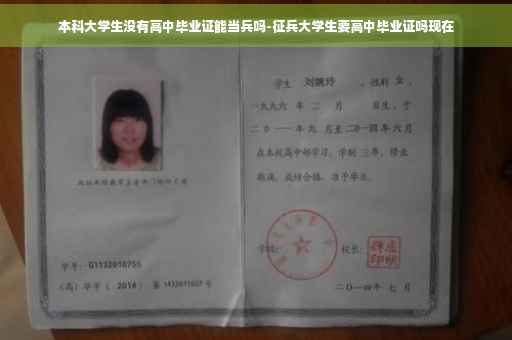 本科大学生没有高中毕业证能当兵吗-征兵大学生要高中毕业证吗现在
学生 刘婉玲 ，性别 女 ，
一九九六 年 二 月 日生，于
二０一一 年 九 月至 二0一四 年 六 月
在本校高中部学习，学制 三 年，修业
期满，成绩合格，准予毕业。
学校： 校长：
学号： G1132010755
（高）毕字（ 2014 ）第 1432011007 号
二〇一四年 七 月